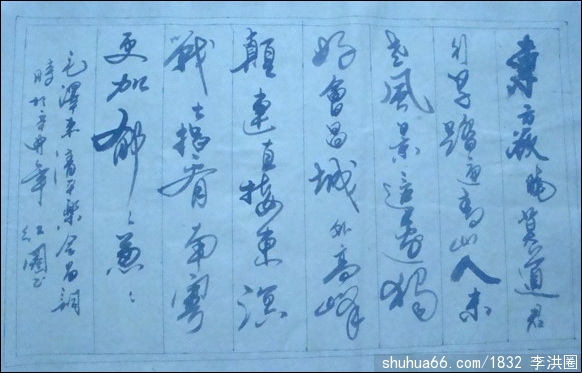 東方欲曉莫道君
行早踏遍青山人未
老風景這邊獨
好會昌城外高峰
顛連直接東溟
戰士指看南粵
更加郁々葱々
毛澤東清平樂會昌詞
時於辛卯年 洪圈书
shuhua66.com/1832 李洪圈